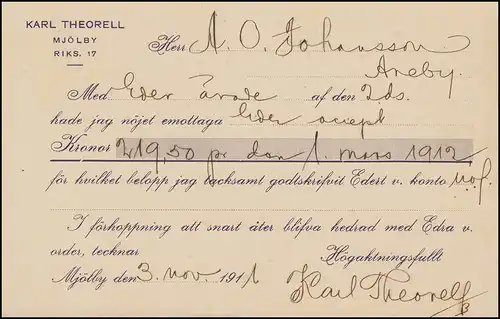 KARL THEORELL
MJÖLBY
RIKS. 17
Herr A. O. Johansson
Aneby.
Med Eder ärade af den 2 ds.
hade jag nöjet emottaga Eder accept
Kronor 219,50 pr den 1. mars 1912
för hvilket belopp jag tacksamt godtskrifvit Edert v. konto u.o.f.
I förhoppning att snart åter blifva hedrad med Edra v.
order, tecknar Högaktningsfullt
Mjölby den 3. nov. 1911
Karl Theorell